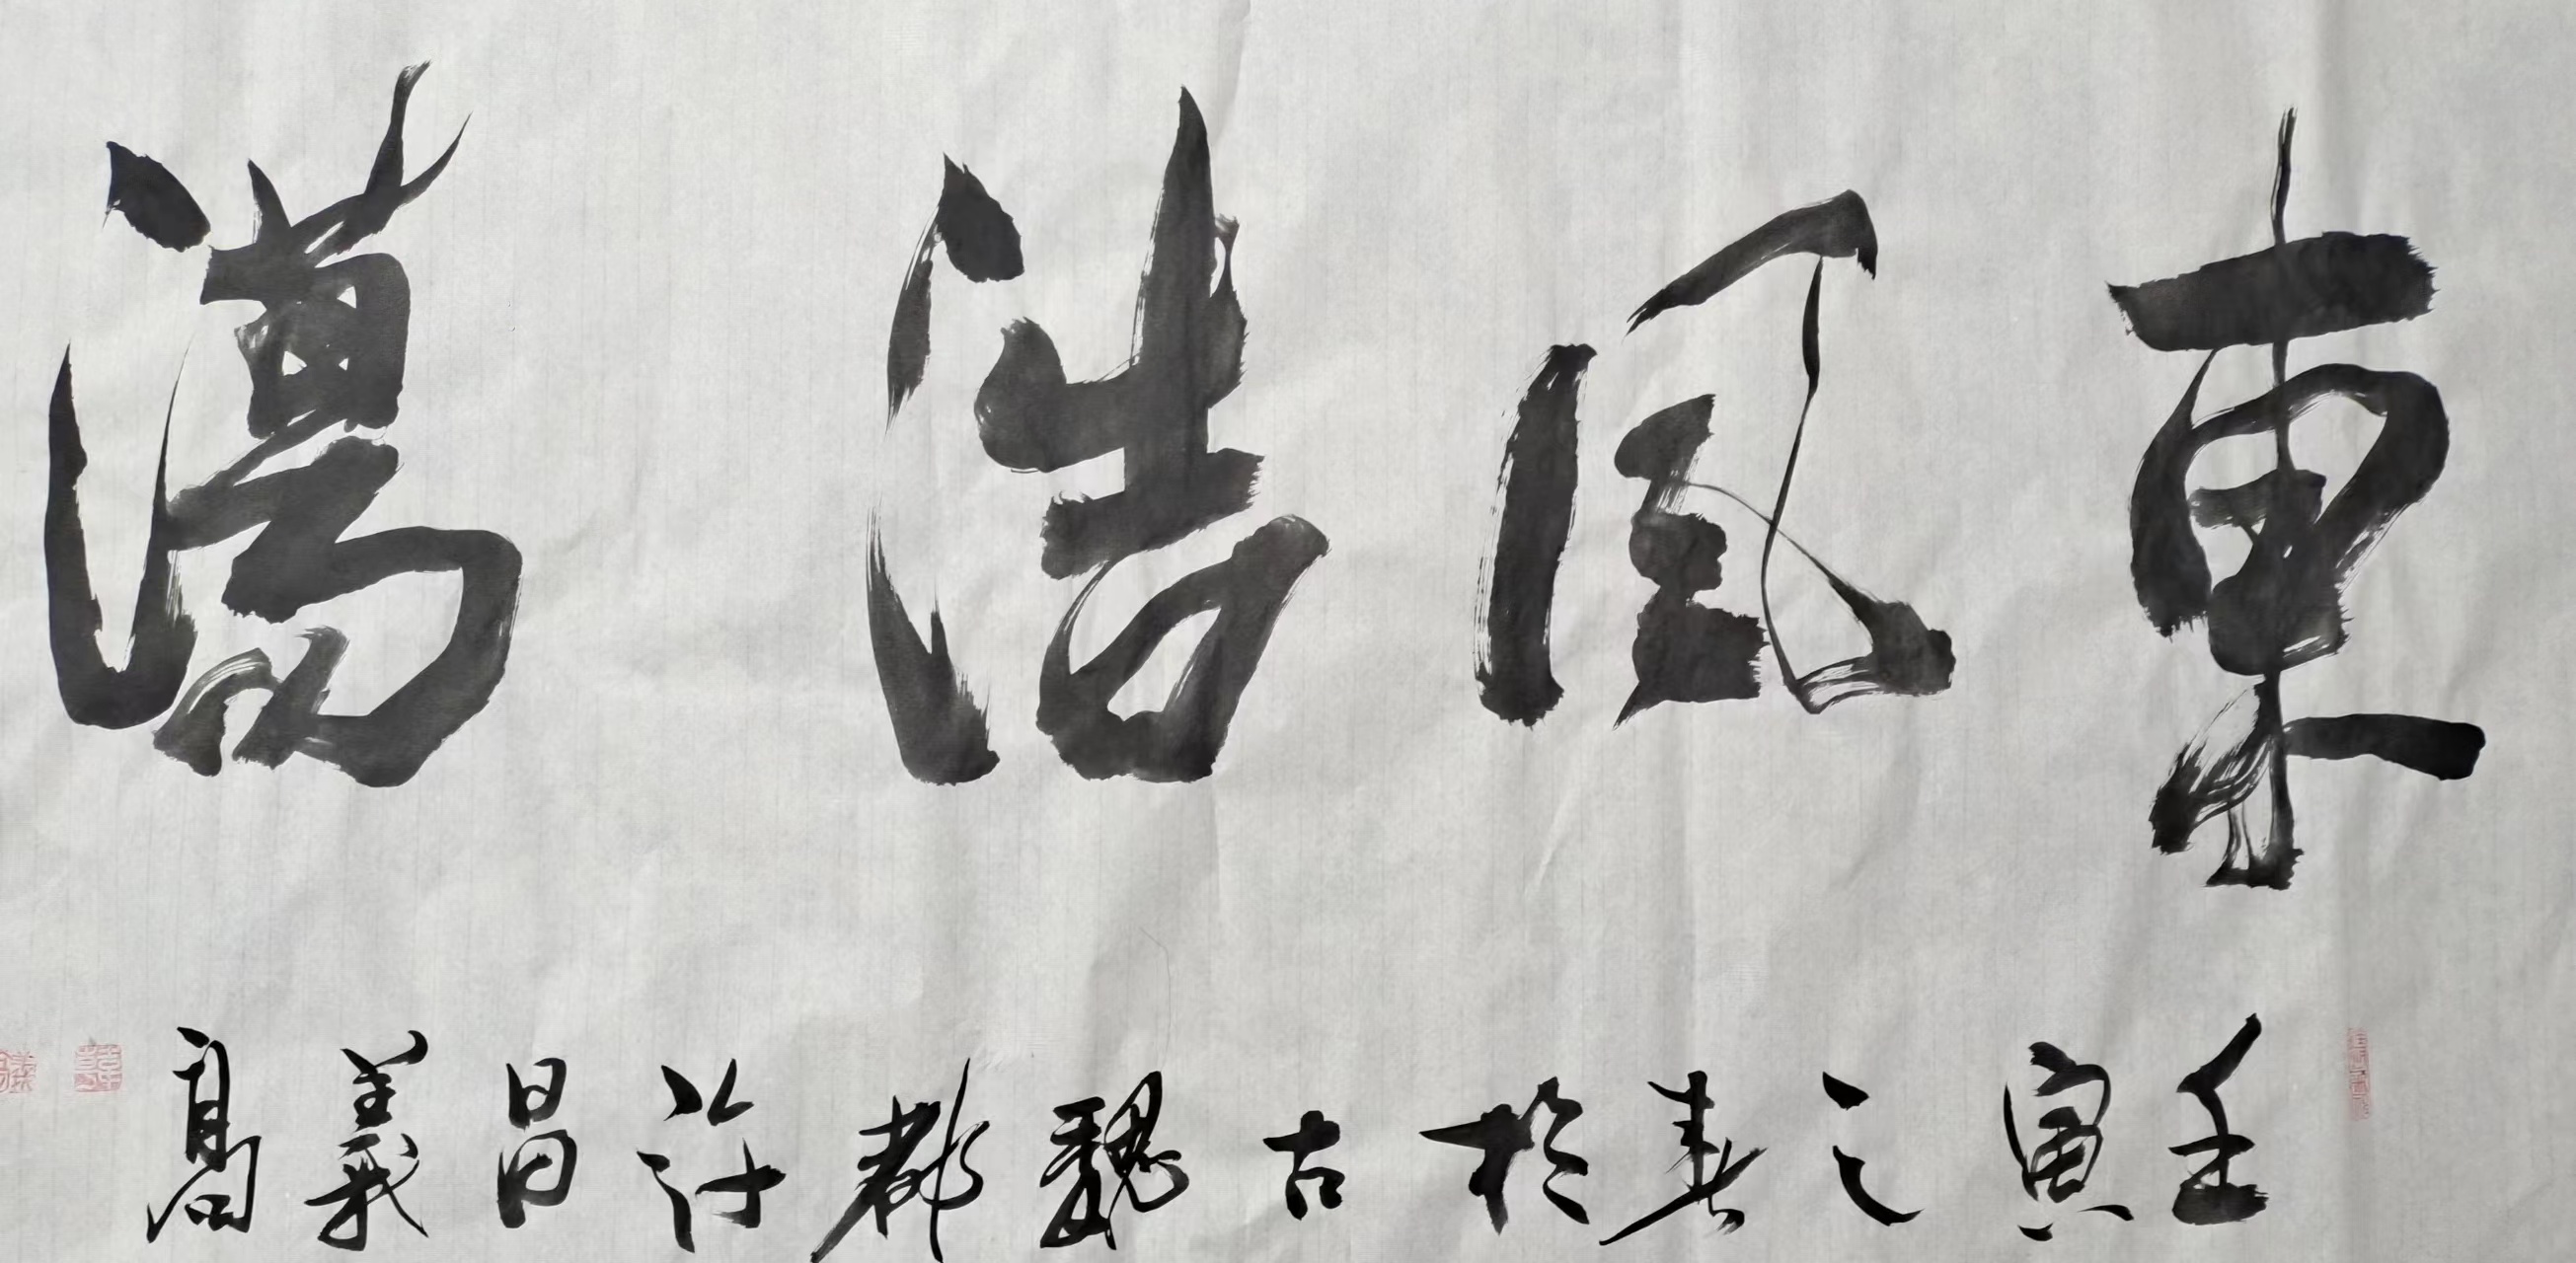 東風浩蕩
壬寅之春於古魏都許昌義高